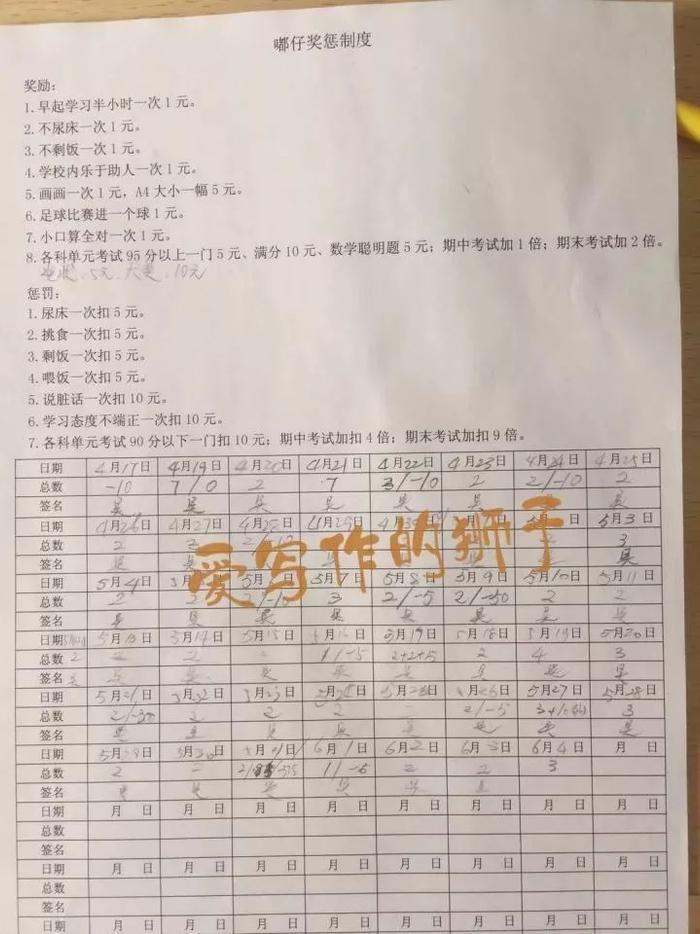 嘟仔奖惩制度
奖励：
1. 早起学习半小时一次 1 元。
2. 不尿床一次 1 元。
3. 不剩饭一次 1 元。
4. 学校内乐于助人一次 1 元。
5. 画画一次 1 元，A4 大小一幅 5 元。
6. 足球比赛进一个球 1 元。
7. 小口算全对一次 1 元。
8. 各科单元考试 95 分以上一门 5 元、满分 10 元、数学聪明题 5 元；期中考试加 1 倍；期末考试加 2 倍。
5元、大
10元
惩罚：
1. 尿床一次扣 5 元。
2. 挑食一次扣 5 元。
3. 剩饭一次扣 5 元。
4. 喂饭一次扣 5 元。
5. 说脏话一次扣 10 元。
6. 学习态度不端正一次扣 10 元。
7. 各科单元考试 90 分以下一门扣 10 元；期中考试加扣 4 倍；期末考试加扣 9 倍。
日期 4月17日 4月19日 4月20日 4月21日 4月22日 4月23日 4月24日 4月25日
总数 -10 7/0 2 7 3/-10 2 2/-10 2
签名 吴 吴 吴 吴 吴 吴 吴
日期 4月26日 4月27日 4月28日 4月29日 4月30日 月 日 月 日 5月3日
总数 2 2 2 3
签名 吴 吴 吴
爱写作的狮子
日期 5月4日 月 日 月 日 5月7日 5月8日 5月9日 5月10日 5月11日
总数 2 2 2/-10 3 2/-5 2/-50 2 2
签名 吴 吴 吴 吴 吴 吴 吴 吴
日期 5月13日 5月14日 5月15日 月 日 5月19日 5月18日 5月19日 5月20日
总数 2 1/-5 2+2+5 2 4 3
签名 吴 吴 吴 吴 吴 吴 吴
日期 5月21日 月 日 月 日 月 日 月 日 月26日 5月27日 5月28日
总数 2/-30 2 2 2 2/-5 3
签名 吴 吴 吴 吴 吴 吴 吴 吴
日期 5月29日 5月30日 月 日 6月1日 6月2日 6月3日 6月4日 月 日
总数 2 1/-5 2 2 3
签名 吴 吴 吴 吴 吴 吴
日期 月 日 月 日 月 日 月 日 月 日 月 日 月 日 月 日
总数
签名
日期 月 日 月 日 月 日 月 日 月 日 月 日 月 日 月 日
总数
签名
日期 月 日 月 日 月 日 月 日 月 日 月 日 月 日 月 日